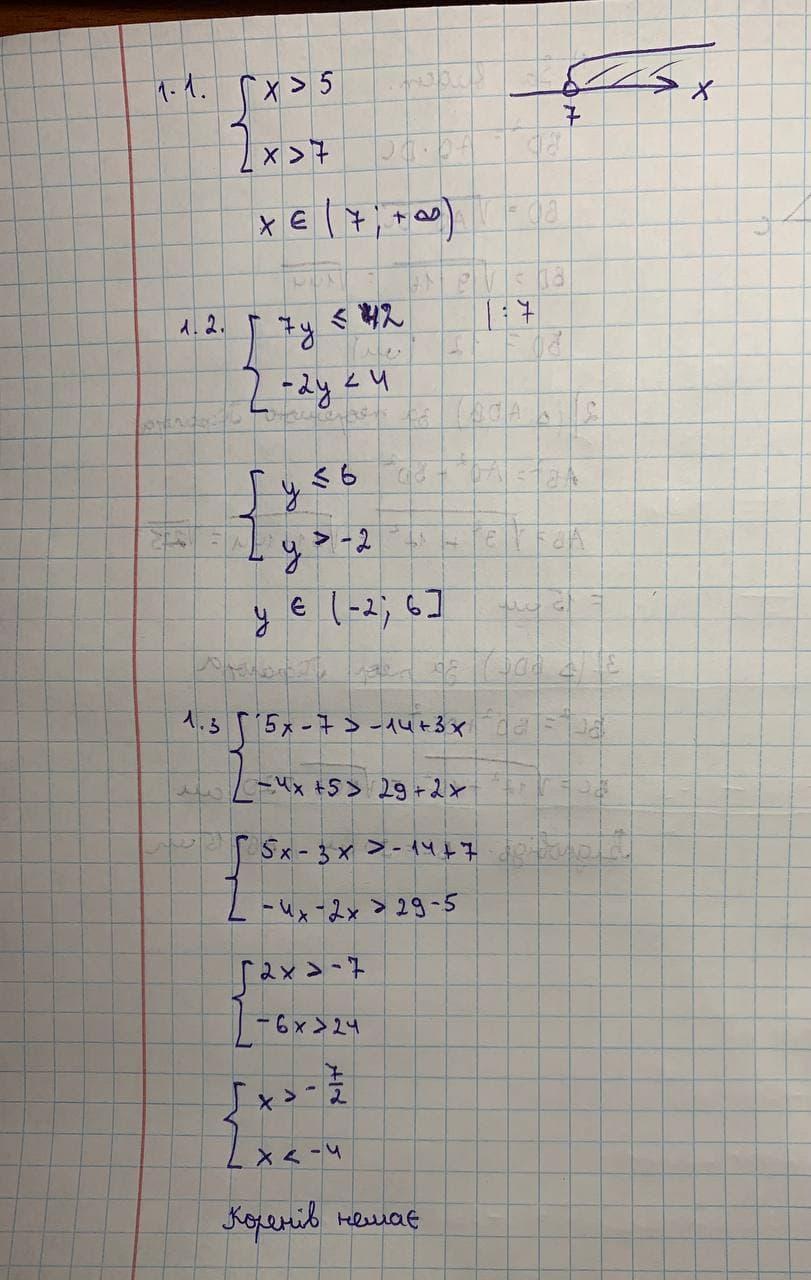 1.1. { x > 5
x > 7
7 x
x ∈ (7; +∞)
1.2. { 7y ≤ 42 | : 7
-2y < 4
{ y ≤ 6
y > -2
y ∈ (-2; 6]
1.3 { 5x - 7 > -14 + 3x
-4x + 5 > 29 + 2x
{ 5x - 3x > -14 + 7
-4x - 2x > 29 - 5
{ 2x > -7
-6x > 24
{ x > - 7/2
x < -4
Коренів немає